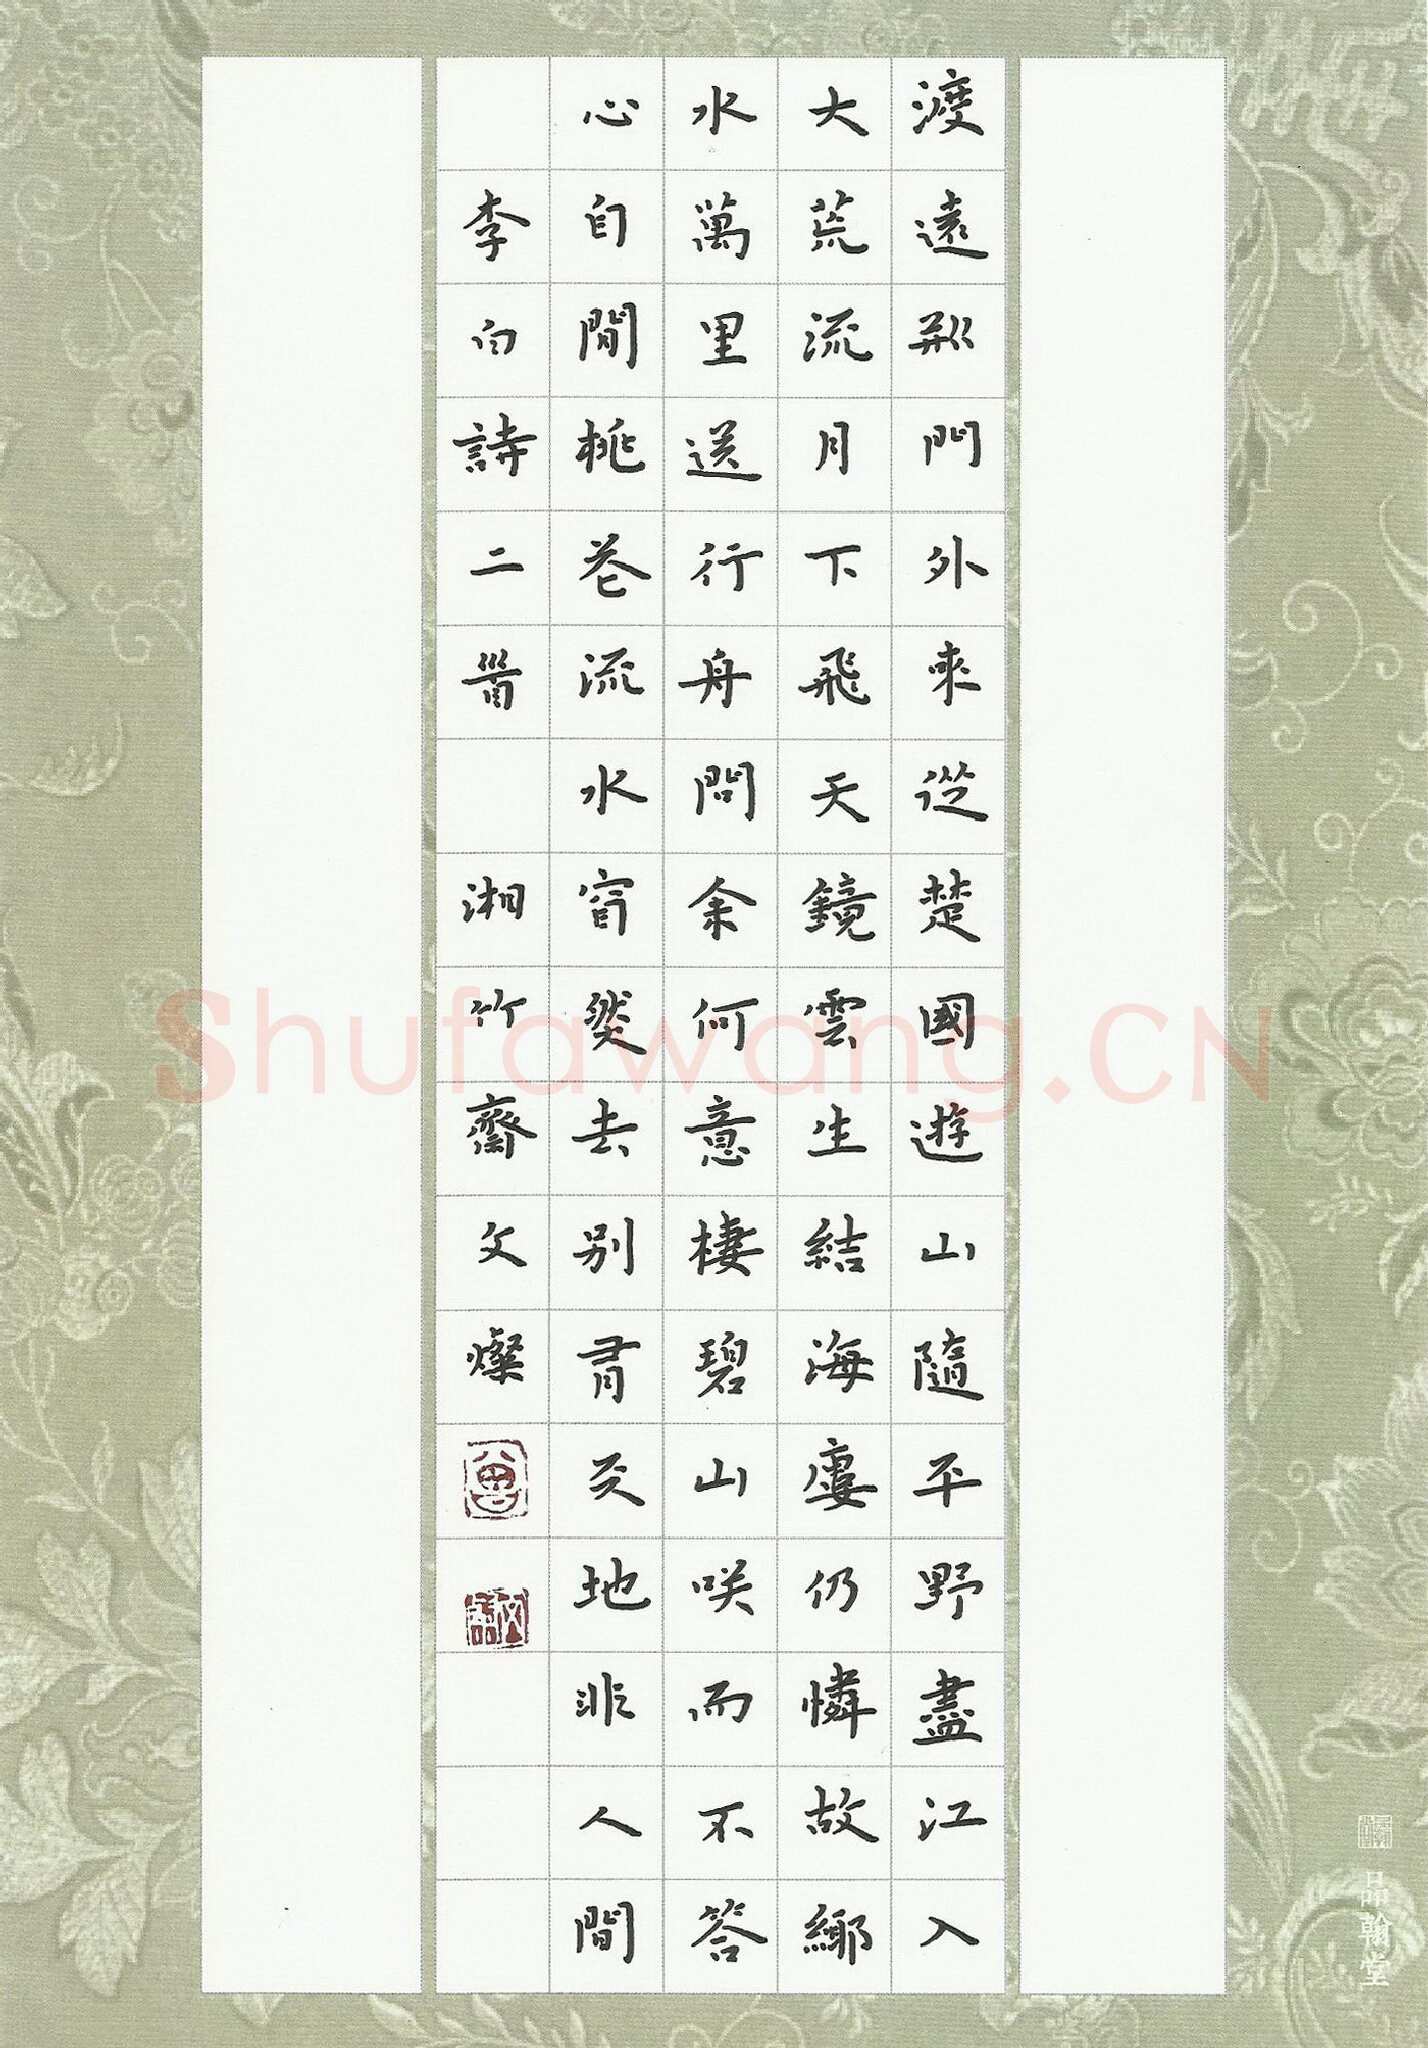 渡遠荊門外來從楚國遊山隨平野盡江入
大荒流月下飛天鏡雲生結海廔仍憐故鄉
水萬里送行舟問余何意棲碧山咲而不答
心自閒桃花流水窅然去別有天地非人間
李白詩二首 湘竹齋文燦
品翰堂
Shufawang.CN